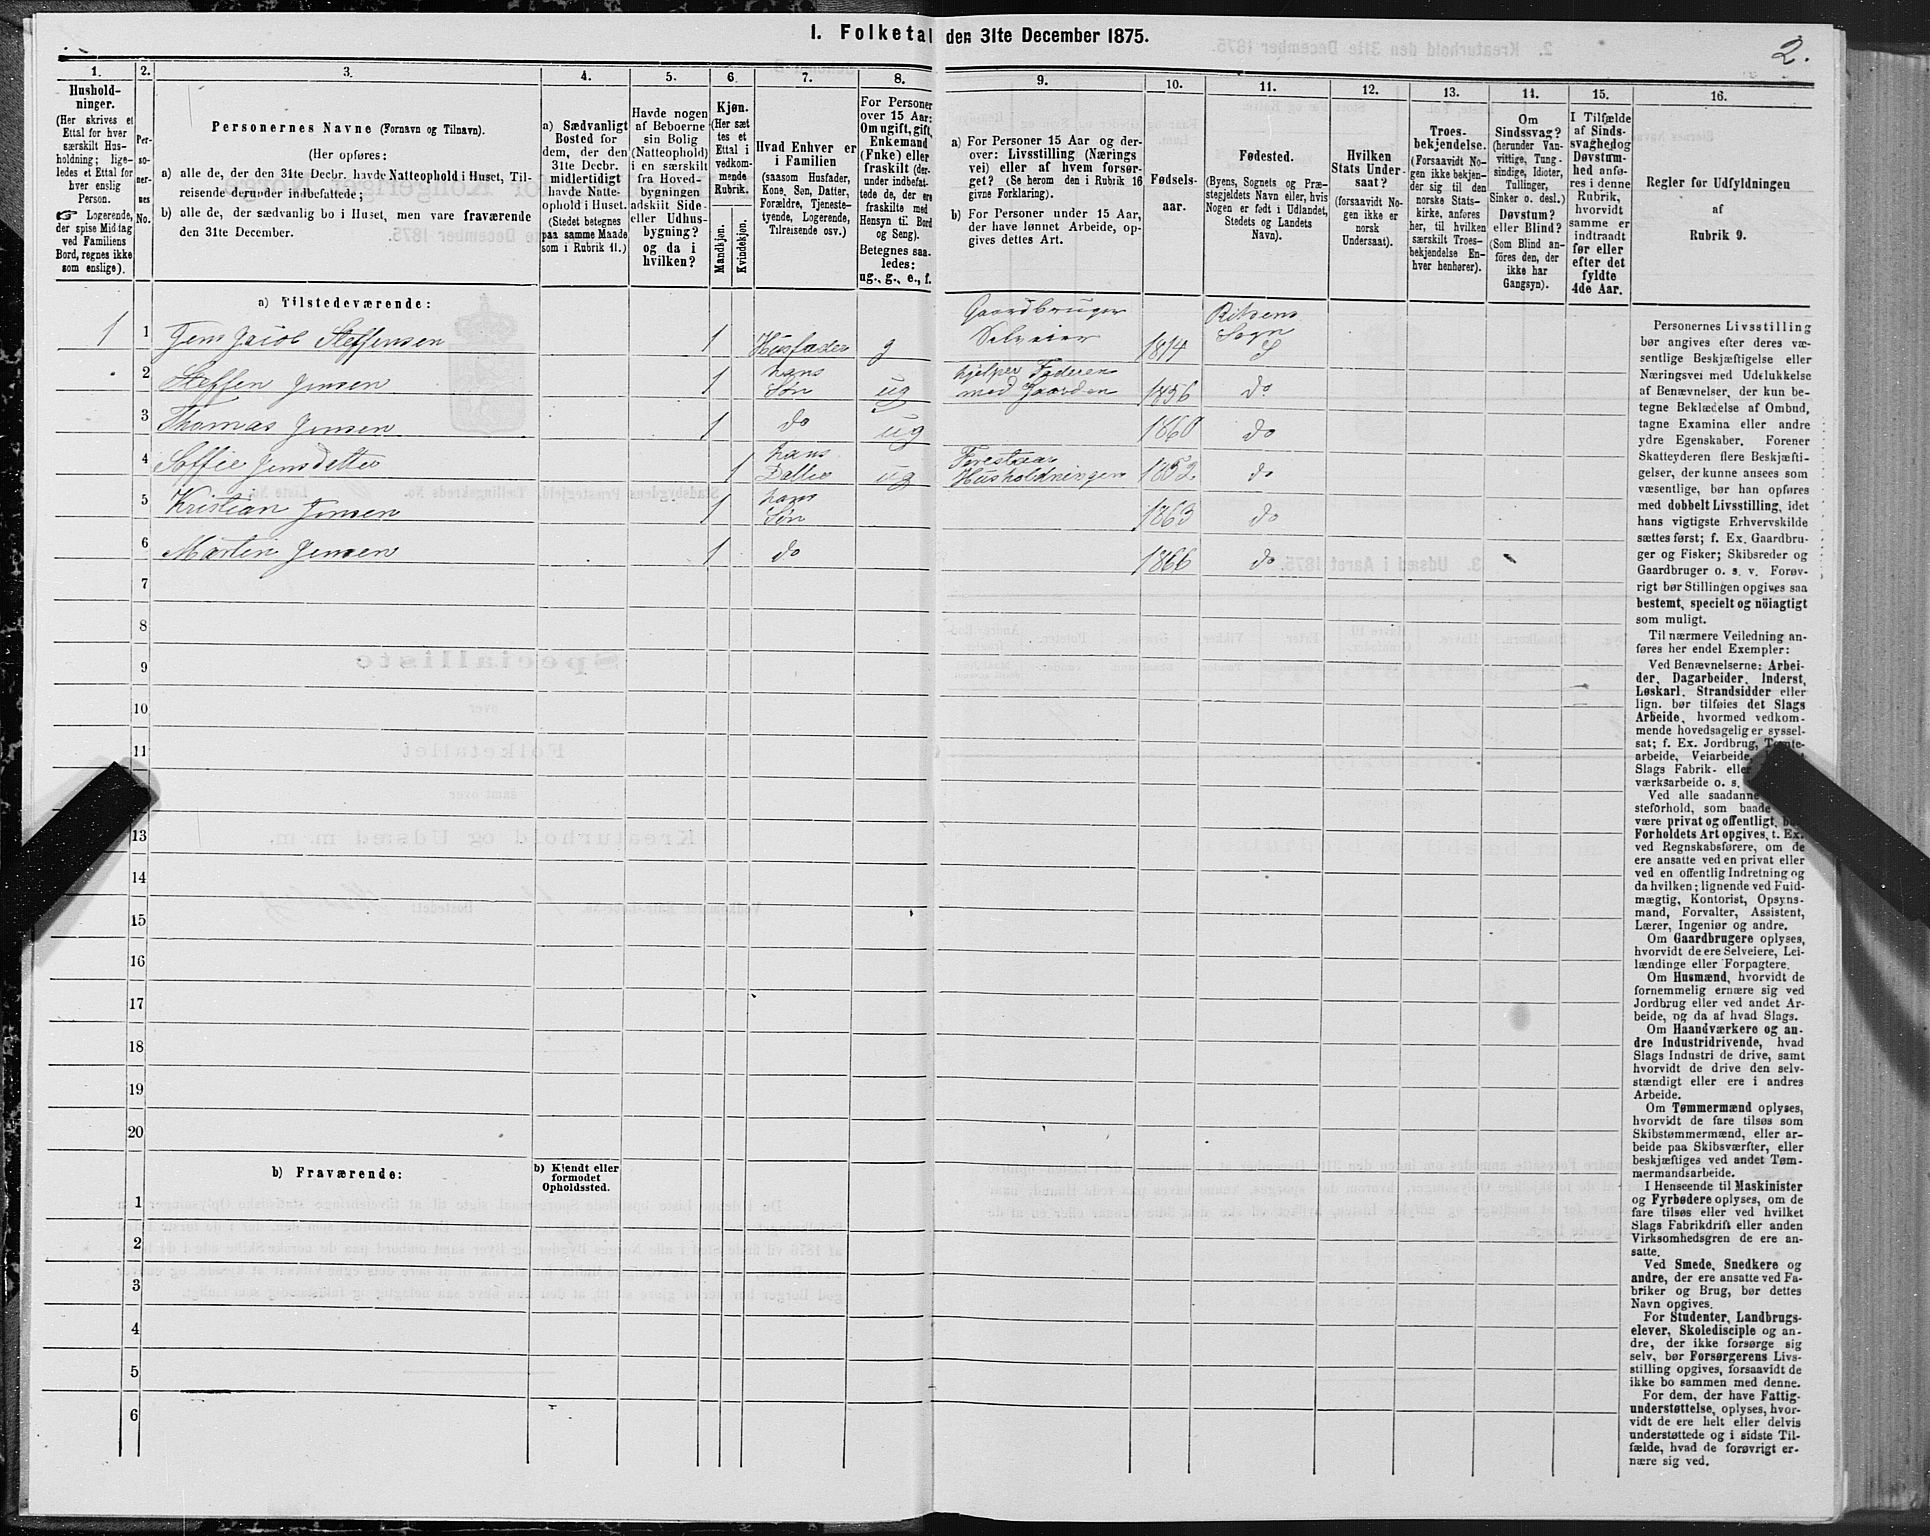 1. Folketal den 31te December 1875.
2.
1.
Hushold-
ninger.
(Her skrives et
Ettal for hver
særskilt Hus-
holdning; lige-
ledes et Ettal for
hver enslig
Person.
☞ Logerende,
der spise Middag
ved Familiens
Bord, regnes ikke
som enslige).
2.
Per-
so-
ner-
nes
No.
3.
Personernes Navne (Fornavn og Tilnavn).
(Her opføres:
a) alle de, der den 31te Decbr. havde Natteophold i Huset, Til-
reisende derunder indbefattede;
b) alle de, der sædvanlig bo i Huset, men vare fraværende
den 31te December.
4.
a) Sædvanligt
Bosted for
dem, der den
31te Decbr.
midlertidigt
havde Natte-
ophold i Huset.
(Stedet betegnes
paa samme Maade
som i Rubrik 11.)
5.
Havde nogen
af Beboerne
sin Bolig
(Natteophold)
i en særskilt
fra Hoved-
bygningen
adskilt Side-
eller Udhus-
bygning?
og da i
hvilken?
6.
Kjøn.
(Her sæt
tes et
Ettal i
vedkom-
mende
Rubrik.
Mandkjøn.
Kvindekjøn.
7.
Hvad Enhver er
i Familien
(saasom Husfader,
Kone, Søn, Datter,
Forældre, Tjeneste-
tyende, Logerende,
Tilreisende osv.)
8.
For Personer
over 15 Aar:
Om ugift, gift,
Enkemand
(Enke) eller
fraskilt (der-
under indbefat-
tede de, der ere
fraskilte med
Hensyn til Bord
og Seng).
Betegnes saa-
ledes:
ug., g., e., f.
9.
a) For Personer 15 Aar og der-
over: Livsstilling (Nærings
vei) eller af hvem forsør-
get? (Se herom den i Rubrik 16
givne Forklaring).
b) For Personer under 15 Aar,
der have lønnet Arbeide, op-
gives dettes Art.
10.
Fødsels-
aar.
11.
Fødested.
(Byens, Sognets og Præ-
stegjeldets Navn eller, hvis
Nogen er født i Udlandet,
Stedets og Landets
Navn).
12.
Hvilken
Stats Under-
saat?
(forsaavidt No-
gen ikke er
norsk
Undersaat).
13.
Troes-
bekjendelse.
(Forsaavidt No-
gen ikke bekjen-
der sig til den
norske Stats-
kirke, anføres
her, til hvilken
særskilt Troes-
bekjendelse En-
hver henhører).
14.
Om
Sindssvag?
(herunder Van-
vittige, Tung-
sindige, Idioter,
Tullinger,
Sinker o. desl.)
Døvstum?
eller Blind?
(Som Blind an-
føres den, der
ikke har
Gangsyn).
15.
I Tilfælde
af Sinds-
svaghed og
Døvstum-
hed anfø-
res i denne
Rubrik,
hvorvidt
samme er
indtraadt
før eller
efter det
fyldte
4de Aar.
16.
Regler før Udfyldningen
af
Rubrik 9.
a) Tilstedeværende:
1 1 Jens Jacob Steffensen 1 Husfader g Gaardbruger Selveier 1814 Sogn
2 Steffen Jensen 1 hans Søn ug hjelper Faderen med Gaarden 1856 do
3 Thomas Jensen 1 do ug 1860 do
4 Soffie Jensdatter 1 hans ug Forestaar Husholdningen 1852 do
5 Kristian Jensen 1 hans Søn 1863 do
6 Marten Jensen 1 do 1866 do
7
8
9
10
11
13
14
15
16
17
18
19
20
b) Fraværende:
b) Kjendt eller
formodet
Opholdssted.
1
2
3
4
5
6
Personernes Livsstilling
bør angives efter deres væ-
sentlige Beskjæftigelse eller
Næringsvei med Udelukkelse
af Benævnelser, der kun be-
tegne Beklædelse af Ombud,
tagne Examina eller andre
ydre Egenskaber. Forener
Skatteyderen flere Beskjæfti-
gelser, der kunne ansees som
væsentlige, bør han opføres
med dobbelt Livsstilling, idet
hans vigtigste Erhvervskilde
sættes først; f. Ex. Gaardbru-
ger og Fisker; Skibsreder og
Gaardbruger o. s. v. Forøv-
rigt bør Stillingen opgives saa
bestemt, specielt og nöiagtigt
som muligt.
Til nærmere Veiledning an-
føres her endel Exempler:
Ved Benævnelserne: Arbei-
der, Dagarbeider, Inderst,
Løskarl, Strandsidder eller
lign. bør tilføies det Slags
Arbeide, hvormed vedkom-
mende hovedsagelig er syssel-
sat; f. Ex. Jordbrug, Tomte-
arbeide, Veiarbeide,
Slags Fabrik- eller
værksarbeide o. s.
Ved alle saadanne
steforhold, som baade
være privat og offentligt, bør
Forholdets Art opgives, t. Ex.
ved Regnskabsførere, om de
ere ansatte ved en privat eller
ved en offentlig Indretning og
da hvilken; lignende ved Fuld-
mægtig, Kontorist, Opsyns-
mand, Forvalter, Assistent,
Lærer, Ingeniør og andre.
Om Gaardbrugere oplyses,
hvorvidt de ere Selveiere, Lei-
lændinge eller Forpagtere.
Om Husmænd, hvorvidt de
fornemmelig ernære sig ved
Jordbrug eller ved andet Ar-
beide, og da af hvad Slags.
Om Haandværkere og an-
dre Industridrivende, hvad
Slags Industri de drive, samt
hvorvidt de drive den selv-
stændigt eller ere i andres
Arbeide.
Om Tømmermænd oplyses,
hvorvidt de fare tilsøs som
Skibstømmermænd, eller ar-
beide paa Skibsværfter, eller
beskjæftiges ved andet Tøm-
mermandsarbeide.
I Henseende til Maskinister
og Fyrbødere oplyses, om de
fare tilsøs eller ved hvilket
Slags Fabrikdrift eller anden
Virksomhedsgren de ere an-
satte.
Ved Smede, Snedkere og
andre, der ere ansatte ved Fa-
briker og Brug, bør dettes
Navn opgives.
For Studenter, Landbrugs-
elever, Skoledisciple og an-
dre, der ikke forsørge sig
selv, bør Forsørgerens Livs-
stilling opgives, forsaavidt de
ikke bo sammen med denne.
For dem, der have Fattig-
understøttelse, oplyses, hvor-
vidt de ere helt eller delvis
understøttede og i sidste Til-
fælde, hvad de forøvrigt er-
nære sig ved.